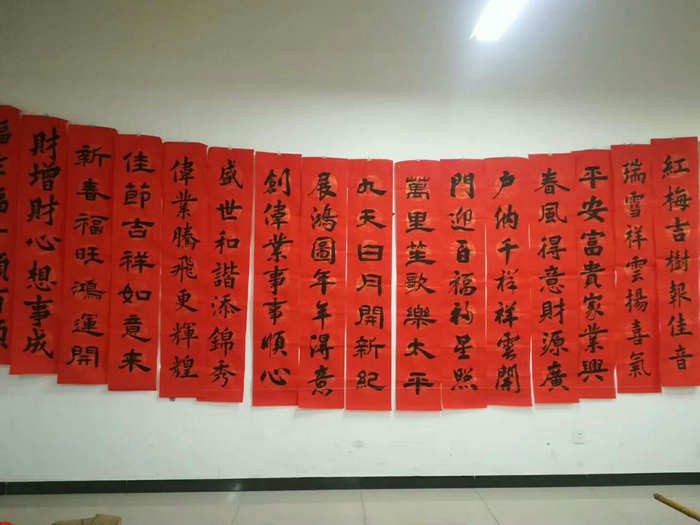 紅梅吉樹報佳音
瑞雪祥雲揚喜氣
平安富貴家業興
春風得意財源廣
戶納千祥祥雲開
門迎百福福星照
萬里笙歌樂太平
九天日月開新紀
展鴻圖年年得意
創偉業事事順心
盛世和諧添錦秀
偉業騰飛更輝煌
佳節吉祥如意來
新春福旺鴻運開
財增財心想事成